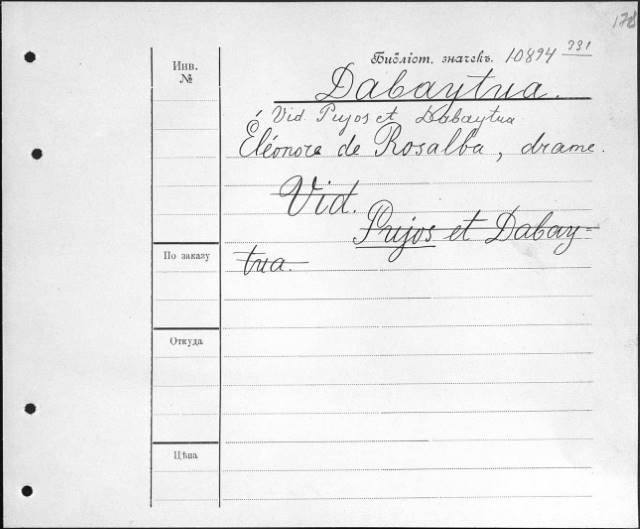 178
Инв.
№
Библіот. значекъ. 10894 331
Dabaytua.
Vid. Pujos et Dabaytua
Éléonore de Rosalba, drame.
Vid.
Pujos et Dabay=
tua.
По заказу
Откуда
Цѣна